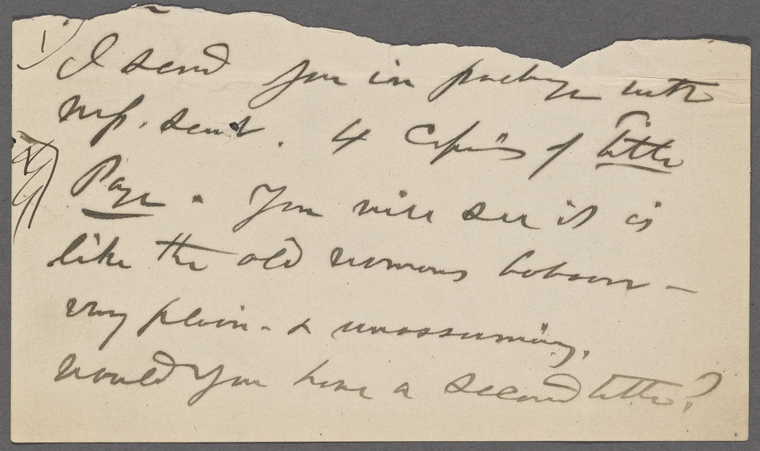 I send you in package with
Mss. sent. 4 Copies of title
Page. You will see it is
like the old
very plain - & unassuming.
would you have a second title?